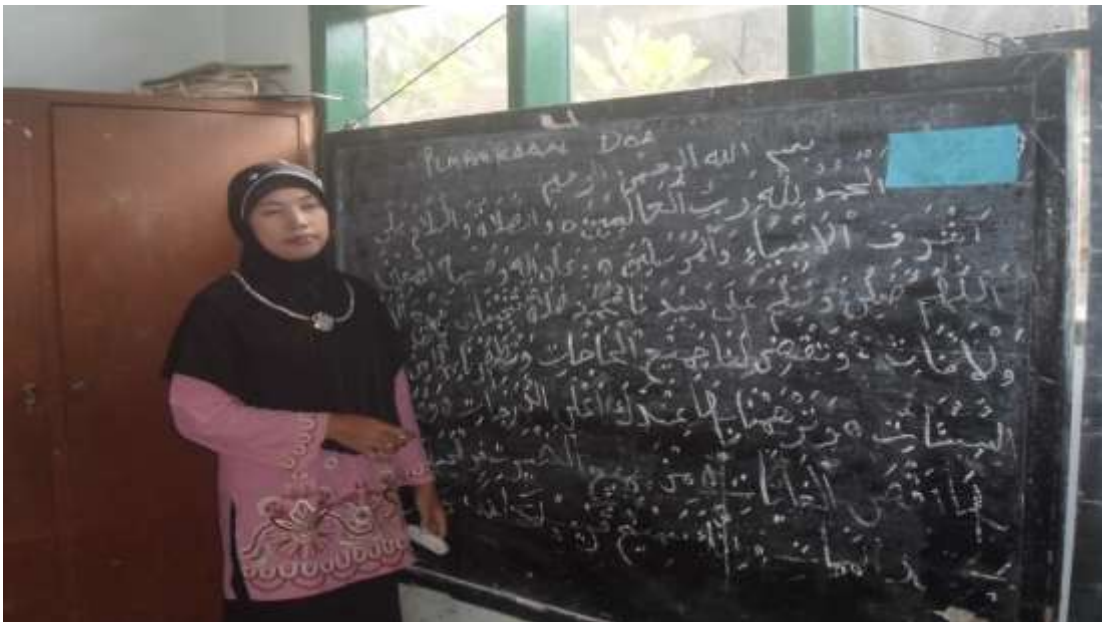 PEMBUKAAN DOA
بسم الله الرحمن الرحيم
اَلْحَمْدُ لِلّٰهِ رَبِّ الْعَالَمِيْنَ وَ الصَّلَاةُ وَالسَّلَامُ عَلَى
اَشْرَفِ الْاَنْبِيَاءِ وَالْمُرْسَلِيْنَ وَعَلَى اٰلِهِ وَصَحْبِهِ
اَللّٰهُمَّ صَلِّ وَسَلِّمْ عَلَى سَيِّدِنَا مُحَمَّدٍ صَلَاةً تُنْجِيْنَا
وَلْاٰفَاتِ وَتَقْضِى لَنَا جَمِيْعَ الْحَاجَاتِ وَتُطَهِّرُنَا
السَّيِّئَاتِ وَتَرْفَعُنَا بِهَا عِنْدَكَ اَعْلَى الدَّرَجَاتِ
اَقْصَى الْغَايَاتِ مِنْ جَمِيْعِ الْخَيْرَاتِ